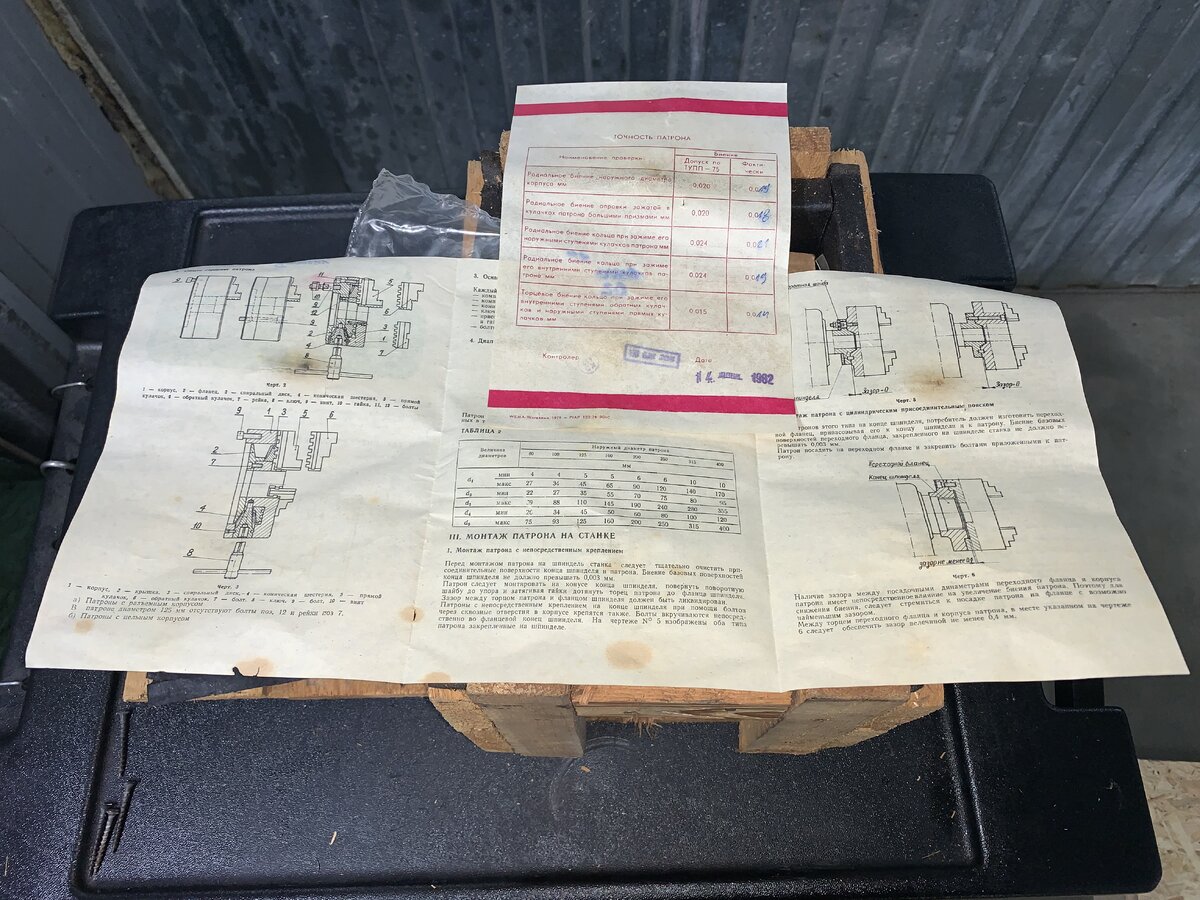 ТОЧНОСТЬ ПАТРОНА
Наименование проверки
Биение
Допуск по ТУПП — 75
Факти-чески
Радиальное биение наружного диаметра
корпуса мм
0,020
Радиальное биение оправки зажатой в
кулачках патрона большими призмами мм
0,020
0,018
Радиальное биение кольца при зажиме его
наружными ступенями кулачков патрона мм
0,024
0,021
Радиальное биение кольца при зажиме
его внутренними ступенями кулачков па-
трона мм
0,024
0,019
Торцевое биение кольца при зажиме его
внутренними ступенями обратных кулач-
ков и наружными ступенями прямых ку-
лачков мм
0,015
0,014
Контролер
Дата
14. 1982
патрона
9
11
10
9
12
3
2
4
8
6
3
1
7
Черт. 2
1 — корпус, 2 — фланец, 3 — спиральный диск, 4 — коническая шестерня, 5 — прямой
кулачок, 6 — обратный кулачок, 7 — рейка, 8 — ключ, 9 — винт, 10 — гайка, 11, 12 — болты
9 1 3 5 6
2
7
4
10
8
1 — корпус, 2 — крышка, 3 — спиральный диск, 4 — коническая шестерня, 5 — прямой
кулачок, 6 — обратный кулачок, 7 — болт, 8 — ключ, 9 — болт, 10 — винт
а) Патроны с разъемным корпусом
В патроне диаметром 125 мм отсутствуют болты поз. 12 и рейки поз 7.
б) Патроны с цельным корпусом
3. Осн
Каждый
4. Диап
Патрон
ТАБЛИЦА 2
Величина
диаметров
Наружный диаметр патрона
80 100 125 160 200 250 315 400
мм
мин 4 4 5 5 6 6 10 10
макс 27 34 45 65 90 120 140 170
мин 22 27 35 55 70 75 80 95
макс 88 110 145 190 240 280
мин 26 34 45 50 60 80 100 120
макс 75 93 125 160 200 250 315 400
III. МОНТАЖ ПАТРОНА НА СТАНКЕ
1. Монтаж патрона с непосредственным креплением
Перед монтажом патрона на шпиндель станка следует тщательно очистить при-
соединительные поверхности конца шпинделя и патрона. Биение базовых поверхностей
конца шпинделя не должно превышать 0,003 мм.
Патрон следует монтировать на конусе конца шпинделя, повернуть поворотную
шайбу до упора и затягивая гайки дотянуть торец патрона до фланца шпинделя.
Зазор между торцом патрона и фланцом шпинделя должен быть ликвидирован.
Патроны с непосредственным креплением на конце шпинделя при помощи болтов
через сквозные отверстия в корпусе крепятся также. Болты вкручиваются непосред-
ственно во фланцевой конец шпинделя. На чертеже № 5 изображены оба типа
патрона закрепленные на шпинделе.
Зазор-0
Зазор-0
Черт. 5
таж патрона с цилиндрическим присоединительным пояском
тронов этого типа на конце шпинделя, потребитель должен изготовить переход-
ной фланец, привинтовывая его к концу шпинделя и к патрону. Биение базовых
поверхностей переходного фланца, закрепленного на шпинделе станка не должно пе-
ревышать 0,003 мм.
Патрон посадить на переходном фланце и закрепить болтами приложенными к пат-
рону.
Переходной фланец
Конец шпинделя
зазор не менее
Черт. 6
Наличие зазора между посадочными диаметрами переходного фланца и корпуса
патрона имеет непосредственное влияние на увеличение биения патрона. Поэтому для
снижения биения, следует стремиться к посадке патрона на фланце с возможно
наименьшим зазором.
Между торцем переходного фланца и корпуса патрона, в месте указанном на чертеже
6 следует обеспечить зазор величиной не менее 0,6 мм.